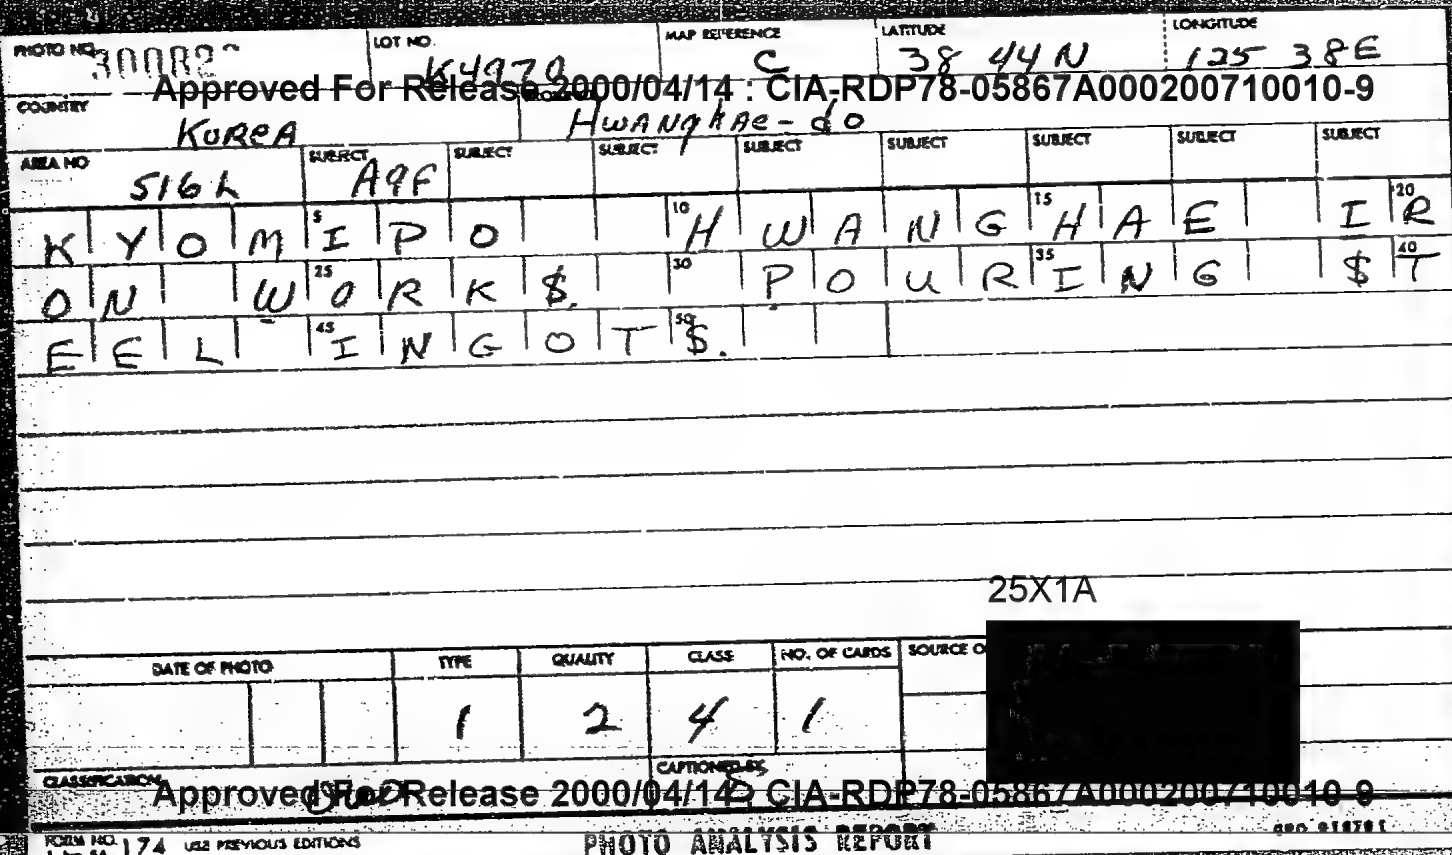 PHOTO NO. LOT NO. MAP REFERENCE LATITUDE LONGITUDE
K4970 C 38 44 N 125 38 E
Approved For Release 2000/04/14 : CIA-RDP78-05867A000200710010-9
COUNTRY
KOREA HWANGHAE-do
AREA NO SUBJECT SUBJECT SUBJECT SUBJECT SUBJECT SUBJECT SUBJECT SUBJECT
516L A9F
5 10 15 20
KYOMIPO HWANGHAE IR
25 30 35 40
ON WORK$. POURING $T
45 50
EEL INGOT$.
25X1A
DATE OF PHOTO TYPE QUALITY CLASS NO. OF CARDS SOURCE O
1 2 4 1
CLASSIFICATION CAPTIONED BY
Approved For Release 2000/04/14 : CIA-RDP78-05867A000200710010-9
FORM NO. 174 USE PREVIOUS EDITIONS PHOTO ANALYSIS REPORT